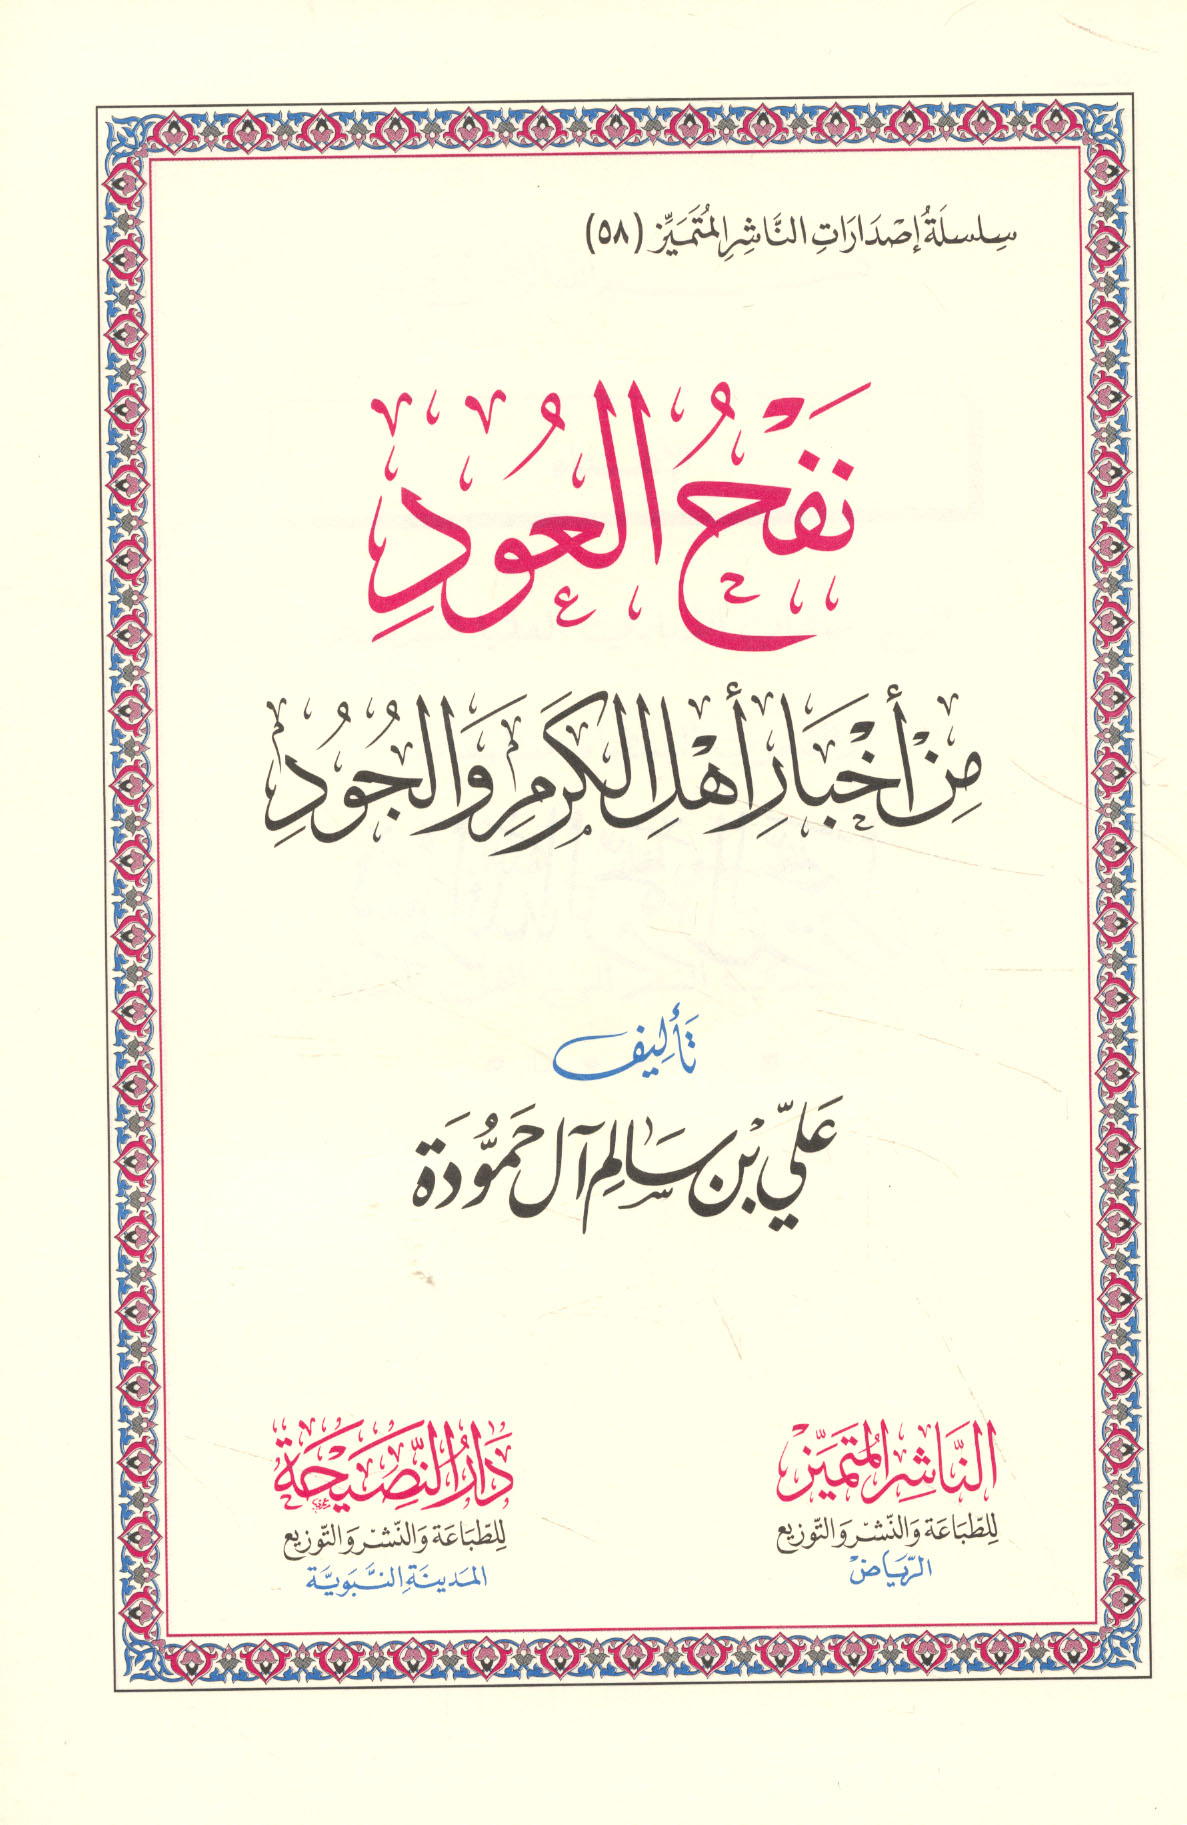 سِلسلَةُ إصْدَارَاتِ النَّاشِرِ المُتَمَيِّز (٥٨)
نَفْحُ العُودِ
مِنْ أَخْبَارِ أَهْلِ الكَرَمِ وَالجُودِ
تَأْلِيف
عَلِيّ بْن سَالِم آل حَمُّودَة
النَّاشِرُ المُتَمَيِّز
لِلطِّبَاعَة وَالنَّشْر وَالتَّوْزِيع
الرِّيَاضْ
دَارُ النَّصِيْحَة
لِلطِّبَاعَة وَالنَّشْر وَالتَّوْزِيع
المَدينَة النَّبَويَّة